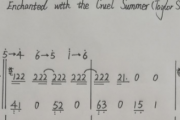 Enchanted with the Cruel Summer (Taylor S
5→4 6→5 1→6
122 222 222 222 222 21. 0 0
41 0 52 0 63 0 15 1